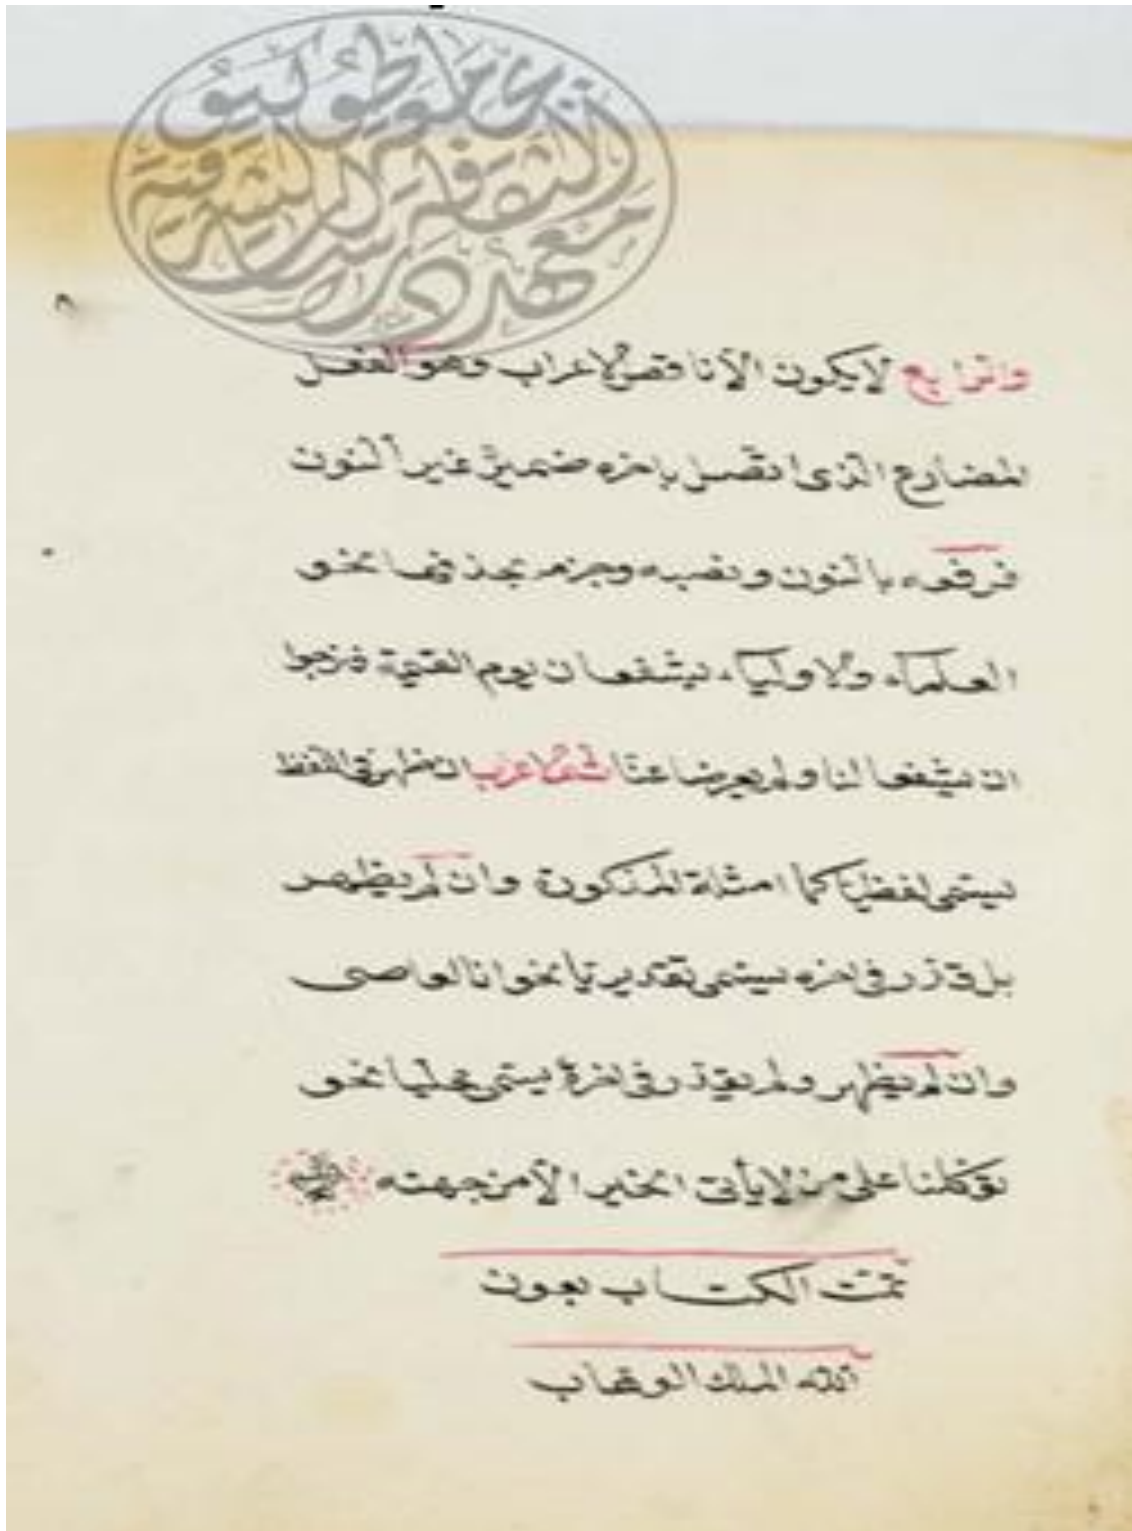 معهد الثقافة والدراسات الشرقية
٨
والرابع لا يكون الا ناقص الاعراب وهو الفعل
المضارع الذى اتصل باخره ضمير غير النون
فرفعه بالنون ونصبه وجزمه بحذفها نحو
العلماء والاولياء يشفعان يوم القيمة فنرجوا
ان يشفعا لنا ولم يعرضا عنا ثم الاعراب ان ظهر فى اللفظ
يسمى لفظيا كما امثلة المذكورة وان لم يظهر
بل قدر فى اخره يسمى تقديريا نحو انا العاصى
وان لم يظهر ولم يقدر فى اخره يسمى محليا نحو
توكلنا على من لا يأتى الخير الا من جهته
تمت الكتاب بعون
الله الملك الوهاب